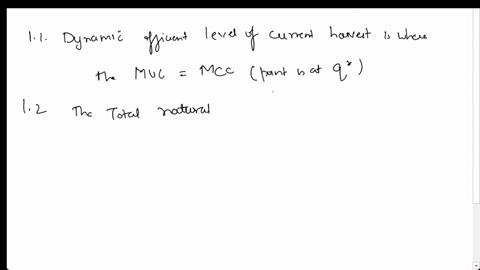 1.1. Dynamic efficient level of current harvest is where
the MUC = MCC (point is at q*)
1.2 The Total natural